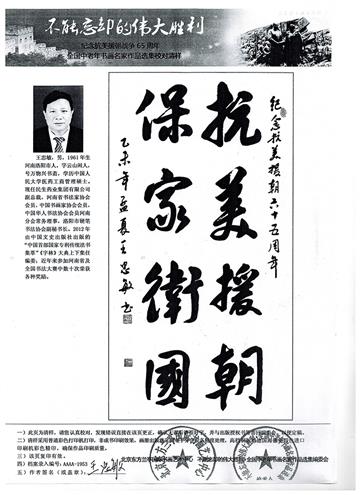 不能忘却的伟大胜利
纪念抗美援朝战争65周年
全国中老年书画名家作品选集校对清样
王忠敏，男，1961年生
河南洛阳市人，字云山闲人，
号万物兴书斋，学历中国人
民大学医药工商管理硕士，
现任民生药业集团有限公司
副总裁，河南省书法家协会
会员，中国书画家协会会员，
中国华人书法协会会员河南
分会常务理事，洛阳市硬笔
书法协会副秘书长。2012年
由中国文史出版社出版的
“中国首部国家专利传统法书
集萃”《字林》大典上下集任
编委；近年来参加河南省及
全国书法大赛中数十次荣获
各种奖励。
纪念抗美援朝六十五周年
抗美援朝
保家卫国
乙未年孟夏王忠敏书
一）此页为清样，请您认真校对，发现错误直接在该页更正，
二）清样采用普通彩色打印机打印，非成书印刷效果，
印刷机彩色精印，确保作品印刷质量。
三）该页复印有效。
四）档案录入编号：AAAA-1953
五）作者签名（或盖章）：王忠敏
北京东方兰亭
不能忘却的伟大胜利
全国中老年书画名家作品选集编委会